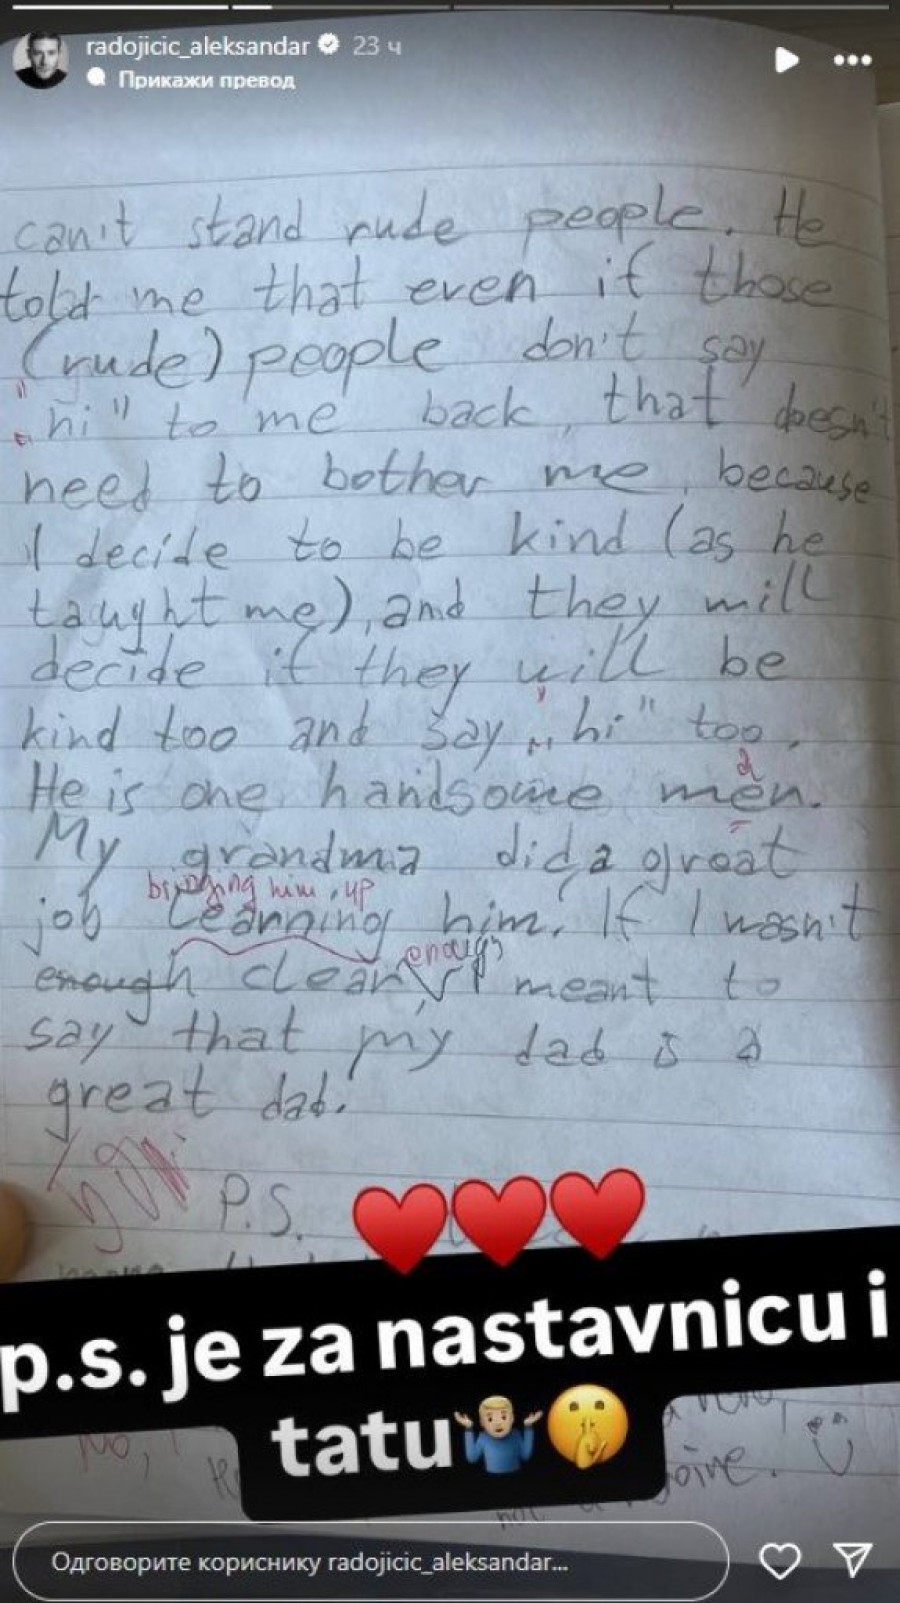 radojicic_aleksandar 23 ч
Прикажи превод
can't stand rude people. He
told me that even if those
(rude) people don't say
„hi" to me back, that doesn't
need to bother me, because
I decide to be kind (as he
taught me), and they will
decide if they will be
kind too and say „hi" too.
a
He is one handsome men.
My grandma did a great
bringing him up
job learning him. If I wasn't
enough
enough clear, I meant to
say that my dad is a
great dad.
P.S.
p.s. je za nastavnicu i
tatu
No, I
Одговорите кориснику radojicic_aleksandar...